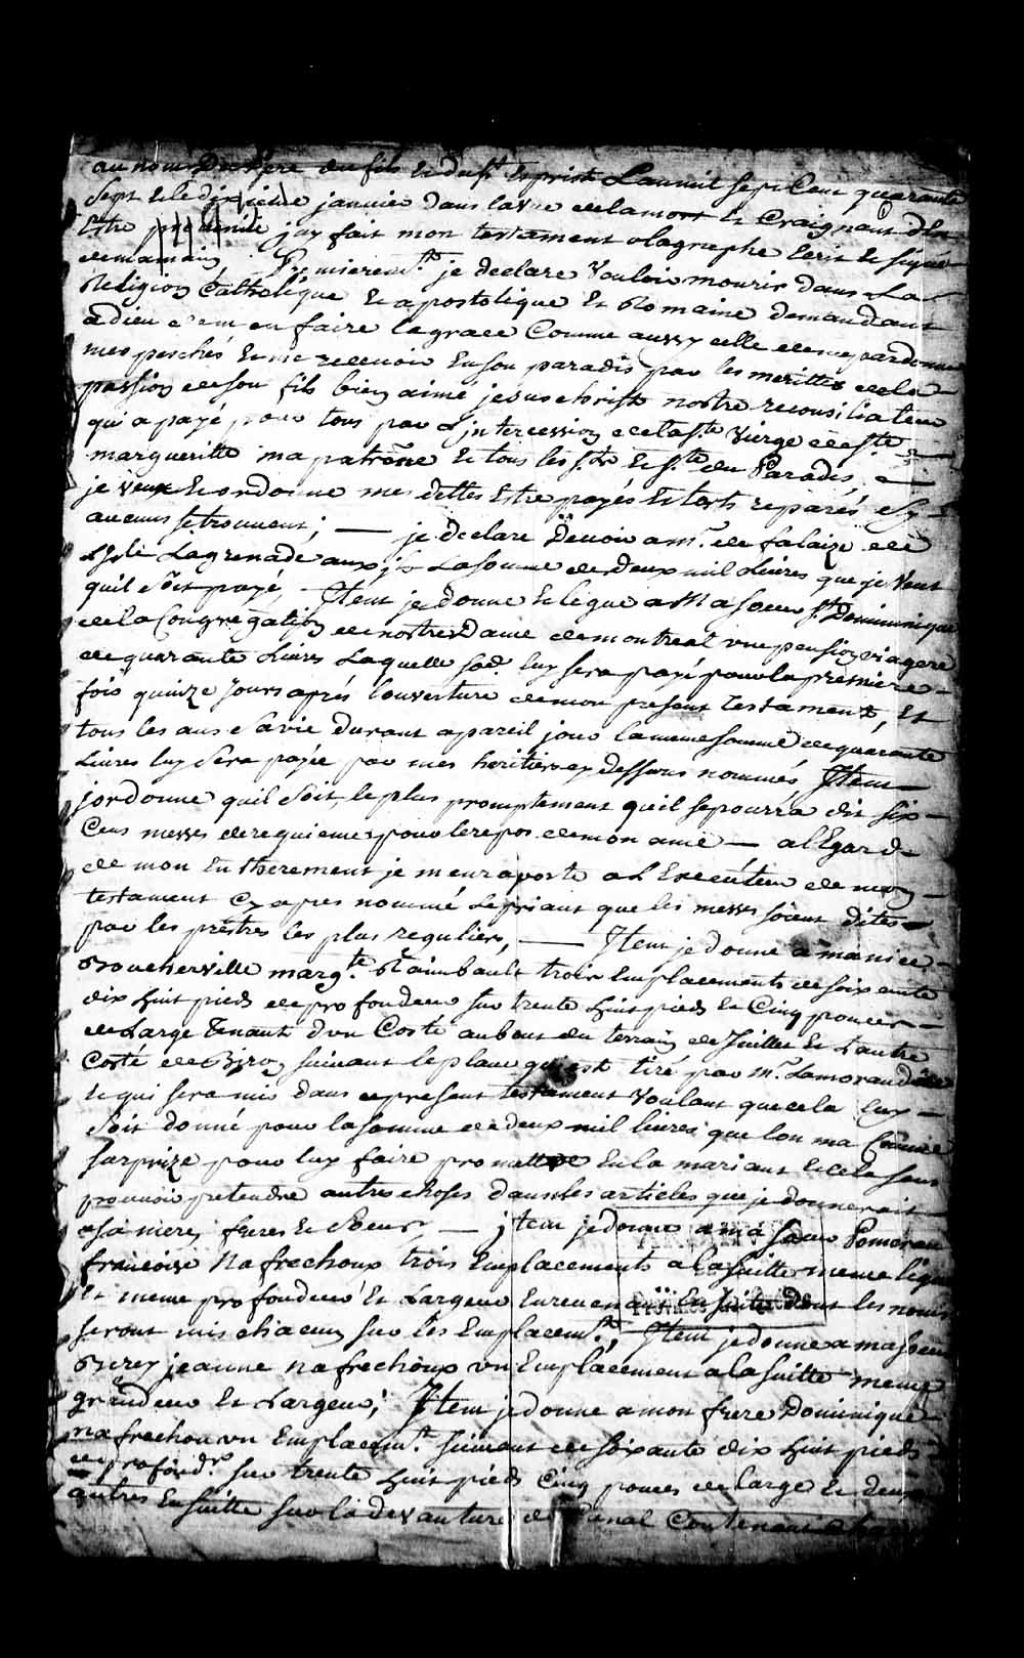 au nom Du Pere du fils Et du st Esprit Lan mil sept Cent quarante
Sept Et le dixieme janvier dans la vue de la mort Et Craignant d'En
Estre prevenüe jay fait mon testament olagraphe Ecrit Et signé
de ma main Premierem.t je declare Vouloir mourir dans La
Religion Catholique Et apostolique Et Romaine demandant
a dieu d'em en faire la grace Comme aussy celle de me pardonner
mes pechés Et me recevoir En son paradis par les merittes de la
passion de son fils bien aimé jesus christ nostre reconsiliateur
qui a payé pour tous par L'jntercession de la ste Vierge de ste
margueritte ma patrône Et tous les sts Et stes du Paradis,
je veux Et ordonne mes dettes Estre payés Et torts reparés sy
aucuns se trouvent; — je declare Devoir a mr. de falaize de
L'jsle Lagrenade aux jles La somme de deux mil Livres que je Veut
quil Soit payé, — Jtem je donne Et legue a Ma soeur st Dominique
de la Congregation de nostre Dame de montreal une pension viagere
de quarante Livres Laquelle sod. luy sera payé pour la premiere
fois quinze jours aprés l'ouverture de mon present testament, Et
tous les ans sa vie durant a pareil jour la meme somme de quarante
Livres luy Sera payée par mes heritiers cy dessous nommés Jtem
jordonne quil Soit le plus promptement quil se pourra dit six
Cens messes de requiemes pour le repos de mon ame — a l'Egard
de mon Entherement je m'en raporte a L'Executeur de mon
testament Cy apres nommé Le priant que les messes soient dites
par les prêstres les plus reguliers, — Jtem je donne a ma niece
Boucherville marg.te Raimbault trois Emplacements de soixante
dix huit pieds de profondeur sur trente huit pieds Et Cinq pouces
de Large Tenant d'un Costé au bout du terrain de Juillet Et L'autre
Costé de Biron suivant le plan qui est tiré par mr. Lamorandiere
Et qui sera mis dans ce present testament Voulant que cela luy
Soit donné pour la somme de deux mil livres que lon ma
surprize pour luy faire promettre En la mariant Et cela sans
pouvoir pretendre autres choses dans les articles que je donnerait
a sa mere, freres Et soeurs, — jtem je donne a ma soeur Pomerau
francoise Nafrechoux trois Emplacements a la suitte meme ligne
Et meme profondeur Et Largeur En revenant En suite dont les noms
seront mis chacun sur les Emplacem.ts, Jtem je donne a ma soeur
Birey jeanne nafrechoux un Emplacement a la suitte meme
grandeur Et Largeur; Jtem je donne a mon frere Dominique
nafrechou un Emplacem.t suivant de soixante dix huit pieds
de profond.r sur trente huit pieds Cinq pouces de large Et deux
autres En suitte sur la devanture du Canal Contenant